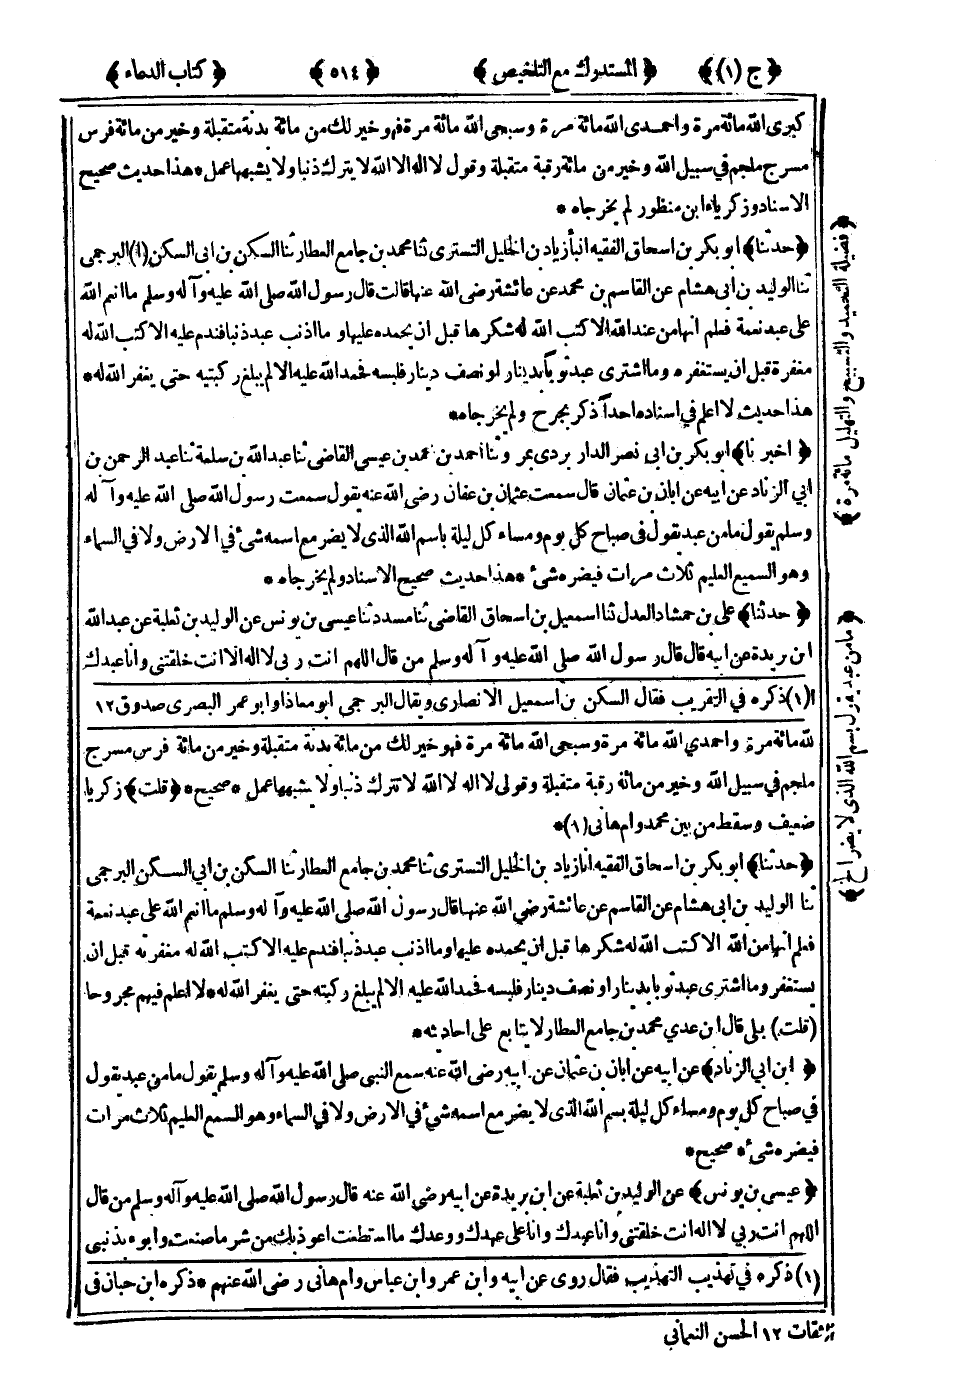 ﴿ ج (١) ﴾ ﴿ المستدرك مع التلخيص ﴾ ﴿ ٥١٤ ﴾ ﴿ كتاب الدعاء ﴾
كبرى الله مائة مرة و احمدى الله مائة مرة و سبحى الله مائة مرة فهو خير لك من مائة بدنة متقبلة وخير من مائة فرس
مسرج ملجم في سبيل الله وخير من مائة رقبة متقبلة وقول لا اله الا الله لا يترك ذنبا ولا يشبهها عمل * هذا حديث صحيح
الاسناد وزكرياء ابن منظور لم يخرجاه *
﴿ حدثنا ﴾ ابو بكر بن اسحاق الفقيه انبأ زياد بن الخليل التسترى ثنا محمد بن جامع العطار ثنا السكن بن ابى السكن (١) البرجمى
ثنا الوليد بن ابى هشام عن القاسم بن محمد عن عائشة رضى الله عنها قالت قال رسول الله صلى الله عليه وآله وسلم ما انعم الله
على عبد نعمة فعلم انها من عند الله الا كتب الله له شكرها قبل ان يحمده عليها و ما اذنب عبد ذنبا فندم عليه الا كتب الله له
مغفرة قبل ان يستغفره وما اشترى عبد ثوبا بدينار لو نصف دينار فلبسه فحمد الله عليه الا لم يبلغ ركبتيه حتى يغفر الله له *
هذا حديث لا اعلم في اسناده احداً ذكر بجرح ولم يخرجاه *
﴿ اخبرنا ﴾ ابو بكر بن ابى نصر الداربردى بمرو ثنا احمد بن محمد بن عيسى القاضى ثنا عبد الله بن سلمة ثنا عبد الرحمن بن
ابي الزناد عن ابيه عن ابان بن عثمان قال سمعت عثمان بن عفان رضى الله عنه يقول سمعت رسول الله صلى الله عليه وآله
وسلم يقول ما من عبد يقول فى صباح كل يوم ومساء كل ليلة باسم الله الذى لا يضر مع اسمه شئ في الارض ولا في السماء
وهو السميع العليم ثلاث مرات فيضره شئ * هذا حديث صحيح الاسناد ولم يخرجاه *
﴿ حدثنا ﴾ على بن حمشاد العدل ثنا اسمعيل بن اسحاق القاضى ثنا مسدد ثنا عيسى بن يونس عن الوليد بن ثعلبة عن عبد الله
ابن بريدة عن ابيه قال قال رسول الله صلى الله عليه وآله وسلم من قال اللهم انت ربى لا اله الا انت خلقتنى وانا عبدك
(١) ذكره في التقريب فقال السكن بن اسمعيل الانصارى ويقال البرجمى ابو معاذ او ابو عمر البصرى صدوق ١٢
لله مائة مرة واحمدي الله مائة مرة وسبحى الله مائة مرة فهو خير لك من مائة بدنة متقبلة وخير من مائة فرس مسرج
ملجم في سبيل الله وخير من مائة رقبة متقبلة وقولى لا اله لا الله لا تترك ذنبا ولا يشبهها عمل * صحيح * ﴿ قلت ﴾ زكريا
ضعيف وسقط من بين محمد وام هانى (١) *
﴿ حدثنا ﴾ ابو بكر بن اسحاق الفقيه انا زياد بن الخليل التسترى ثنا محمد بن جامع العطار ثنا السكن بن ابي السكن البرجمى
ثنا الوليد بن ابى هشام عن القاسم عن عائشة رضي الله عنها قال رسول الله صلى الله عليه وآله وسلم ما انعم الله على عبد نعمة
فعلم انها من الله الا كتب الله له شكرها قبل ان يحمده عليها وما اذنب عبد ذنبا فندم عليه الا كتب الله له مغفرته قبل ان
يستغفر وما اشترى عبد ثوبا بدينار او نصف دينار فلبسه فحمد الله عليه الا لم يبلغ ركبته حتى يغفر الله له * لا اعلم فيهم مجروحا
(قلت) بلى قال ابن عدي محمد بن جامع العطار لا يتابع على احاديثه *
﴿ ابن ابي الزناد ﴾ عن ابيه عن ابان بن عثمان عن ابيه رضى الله عنه سمع النبى صلى الله عليه وآله وسلم يقول ما من عبد يقول
في صباح كل يوم ومساء كل ليلة بسم الله الذى لا يضر مع اسمه شئ في الارض ولا في السماء وهو السمع العليم ثلاث مرات
فيضره شئ * صحيح *
﴿ عيسى بن يونس ﴾ عن الوليد بن ثعلبة عن ابن بريدة عن ابيه رضي الله عنه قال رسول الله صلى الله عليه وآله وسلم من قال
اللهم انت ربي لا اله انت خلقتنى وانا عبدك وانا على عهدك ووعدك ما استطعت اعوذ بك من شر ما صنعت وابوء بذنبى
(١) ذكره في تهذيب التهذيب فقال روى عن ابيه وابن عمر وابن عباس وام هانى رضى الله عنهم * ذكره ابن حبان فى
الثقات ١٢ الحسن النعماني
﴿ فضيلة التحميد والتسبيح والتهليل مائة مرة ﴾
﴿ ما من عبد يقول بسم الله الذى لا يضر الخ ﴾